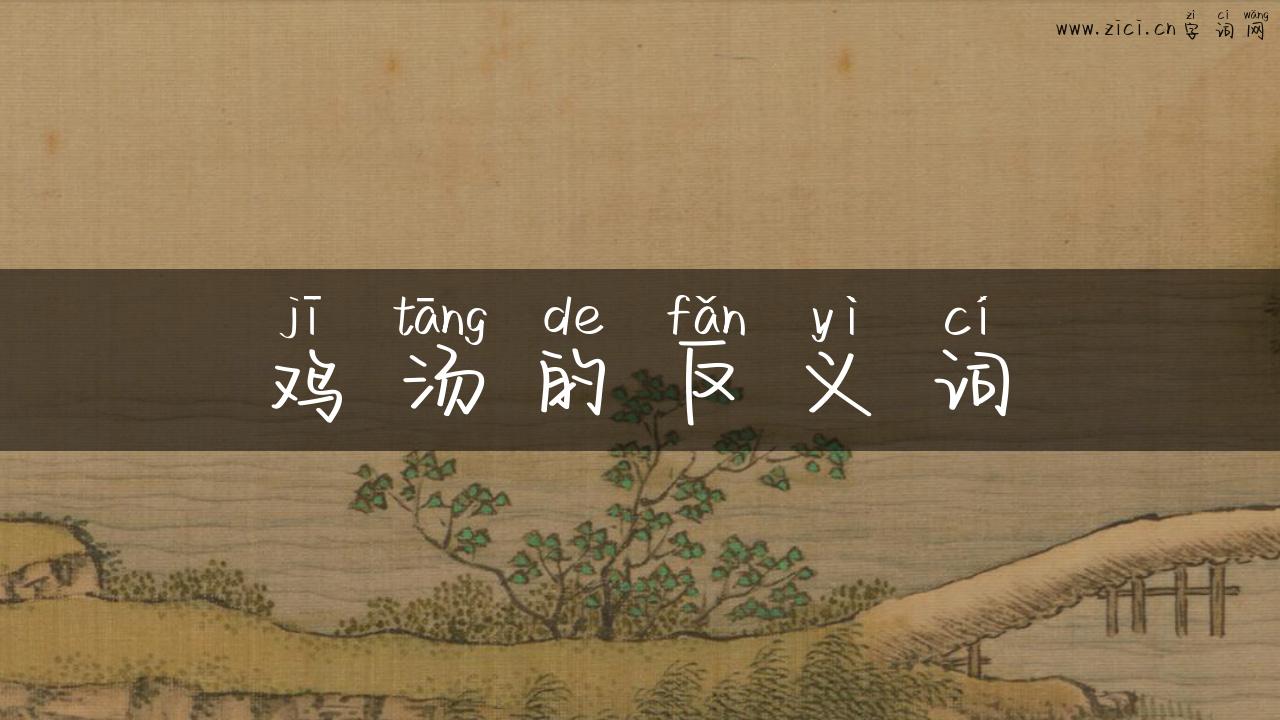 zì cí wǎng
www.zici.cn 字词网
jī tāng de fǎn yì cí
鸡汤的反义词